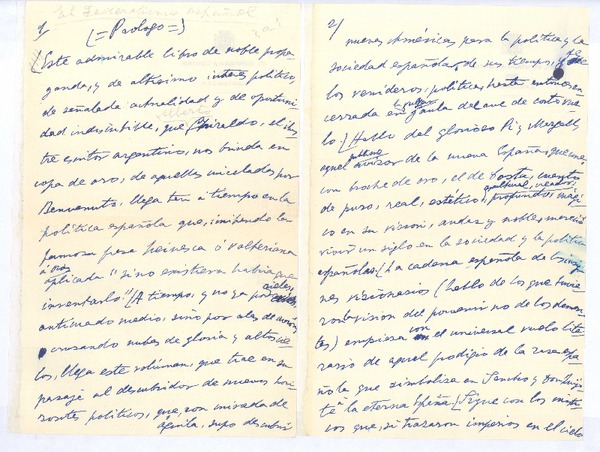 El Federalismo español
1/ (=Prólogo=)
(Este admirable libro de noble propa-
ganda, y de altísimo interés político
de señalada actualidad y de oportuni-
dad indiscutible, que Ghiraldo, el ilus
tre escritor argentino, nos brinda en
copa de oro, de aquellas cinceladas por
Benvenuto, llega tan a tiempo en la
política española que, imitando la
famosa frase heinesca o volteriana
aplicada "si no existiera habría que
inventarlo" (A tiempo, y no ya por
anticuado medio, sino por alas de avión,
cruzando nubes de gloria y altos cie
los, llega este volumen, que trae en su
pasaje al descubridor de nuevos hori
zontes políticos, que, con mirada de
águila, supo descubrir
2/
nuevas Américas para la política y la
sociedad españolas, de su tiempo, y de
los venideros; política hasta entonces en
cerrada en jaula del ave de corto vue
lo (Hablo del glorioso Pi y Margall,
aquel avizor de la nueva España, que une
con broche de oro, el de Costa, cuento
de puro, real, estético, profundo, mági
co en su visión, audaz y noble, mereció
vivir un siglo en la sociedad y la política
españolas. (La cadena española de los insig
nes visionarios (hablo de los que tuvie
ron la visión del porvenir no de los demen
tes) empieza con el universal vuelo lite
rario de aquel prodigio de la raza espa
ñola que simboliza en Sancho y Don Quijo
te a la eterna España. (Sigue con los místi
cos que, si trazaron imperios en el cielo